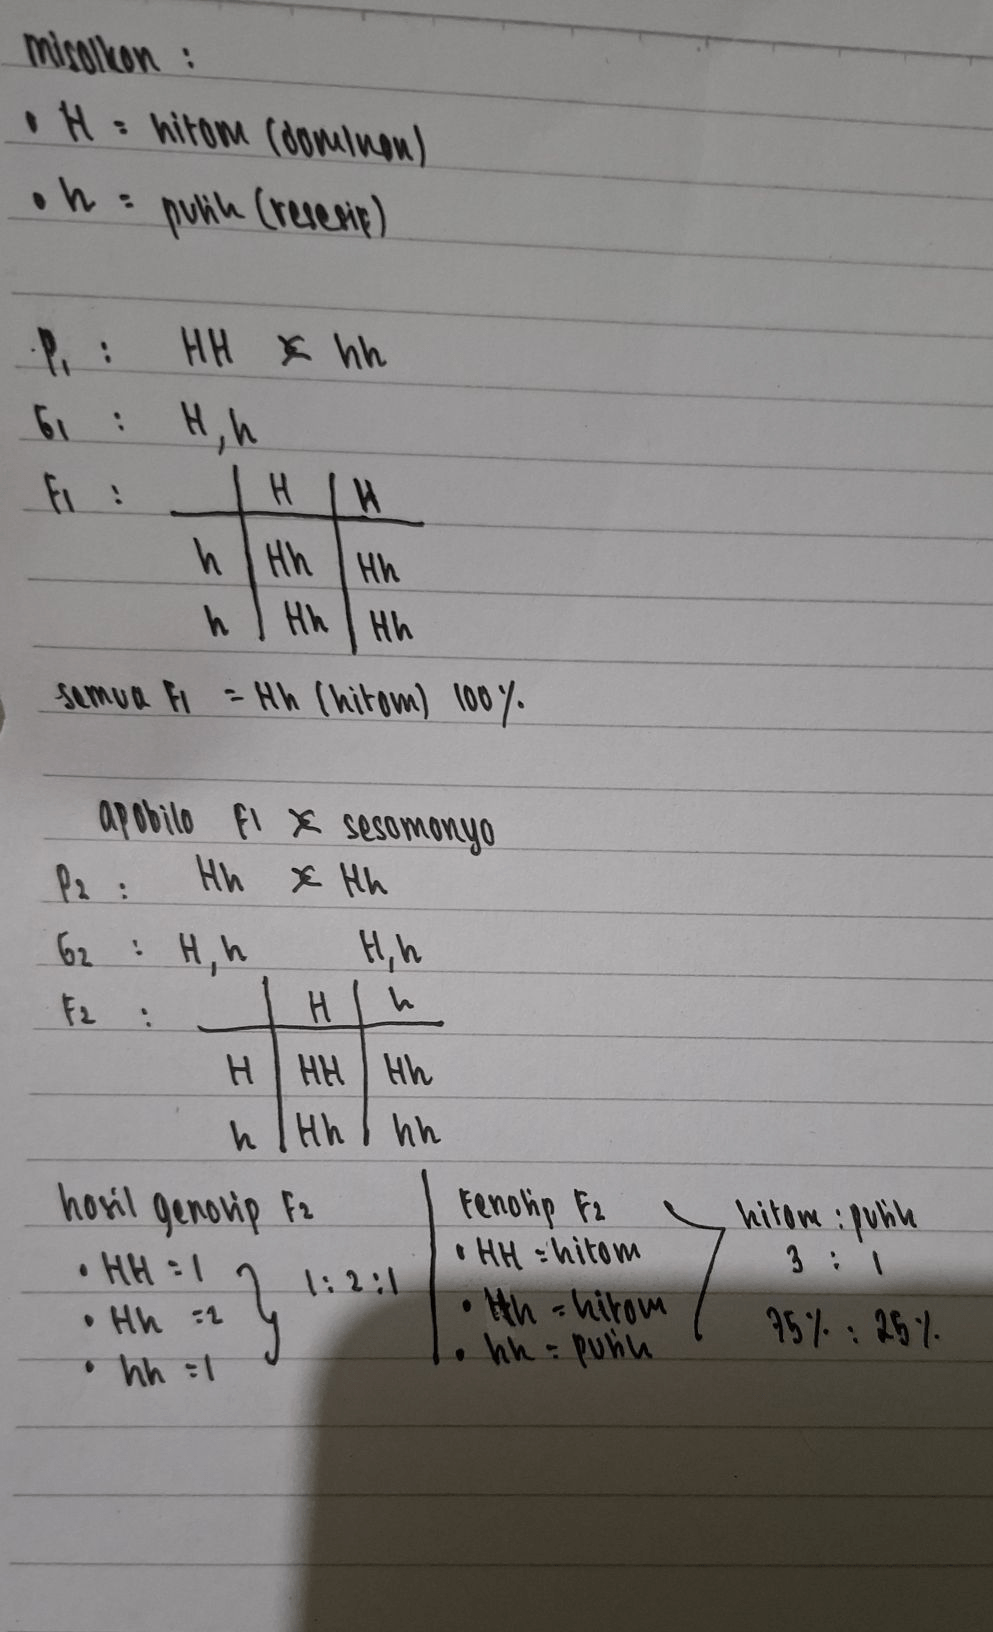 misalkan :
• H = hitam (dominan)
• h = putih (resesip)
P1 : HH x hh
G1 : H, h
F1 : H H
h Hh Hh
h Hh Hh
semua F1 = Hh (hitam) 100%
apabila F1 x sesamanya
P2 : Hh x Hh
G2 : H, h H, h
F2 : H h
H HH Hh
h Hh hh
hasil genotip F2
• HH = 1
• Hh = 2
• hh = 1
1 : 2 : 1
Fenotip F2
• HH = hitam
• Hh = hitam
• hh = putih
hitam : putih
3 : 1
75% : 25%